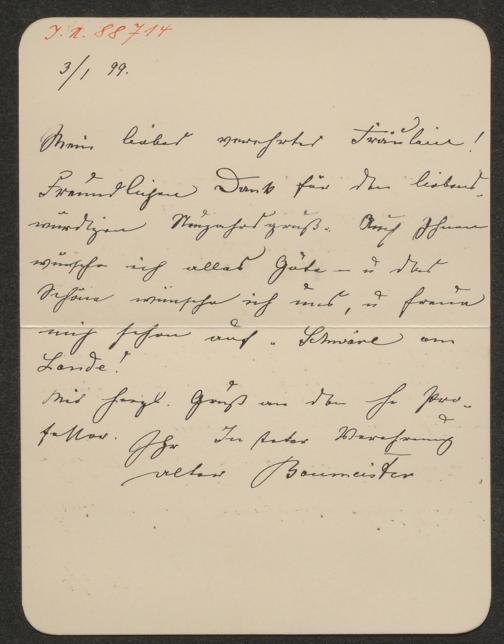 I. N. 88714
3/1 99.
Mein liebes verehrtes Fräulein!
Freundlichen Dank für den liebens-
würdigen Neujahrsgruß. Auch Ihnen
wünsche ich alles Gute – u das
Schöne wünsche ich uns, u freue
mich schon auf am
Lande!
Mit herzl. Gruß an den H Pro-
fessor. Ihr In steter Verehrung
alter Baumeister